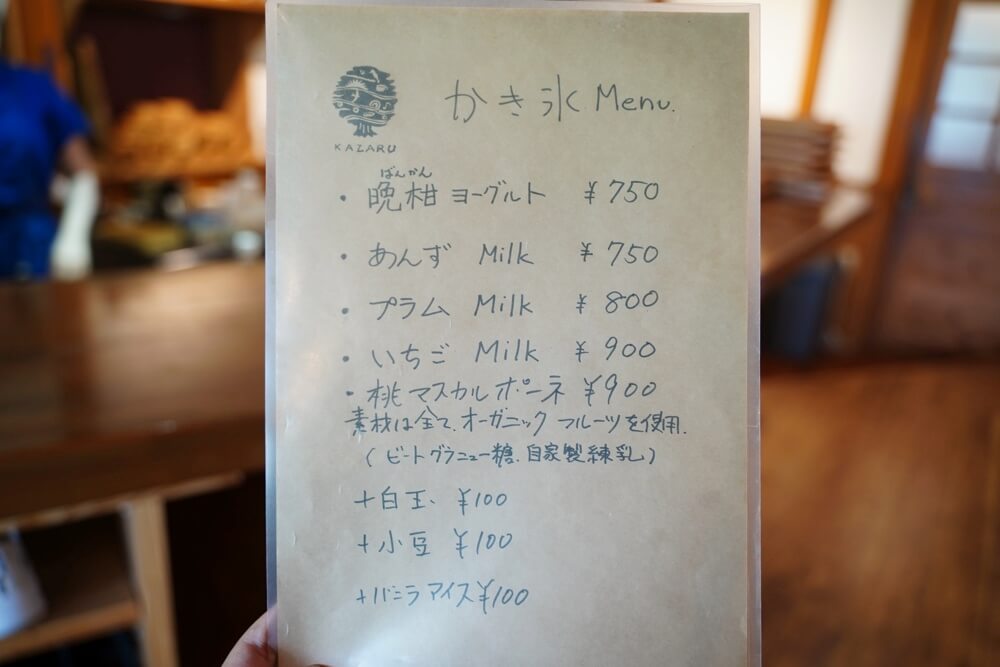 かき氷 Menu.
KAZARU
ばんかん
・晩柑 ヨーグルト ¥750
・あんず Milk ¥750
・プラム Milk ¥800
・いちご Milk ¥900
・桃マスカルポーネ ¥900
素材は全て、オーガニックフルーツを使用.
(ビートグラニュー糖、自家製練乳)
+白玉、¥100
+小豆 ¥100
+バニラアイス¥100